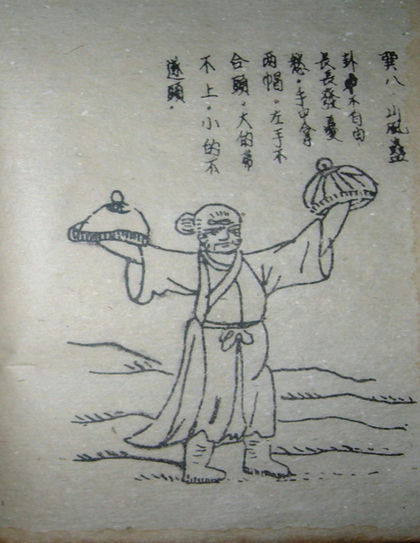 巽八 山風蠱
卦中不自由
長長發憂
愁。手中拿
两帽。左手不
合頭。大的帶
不上。小的不
遮頭。